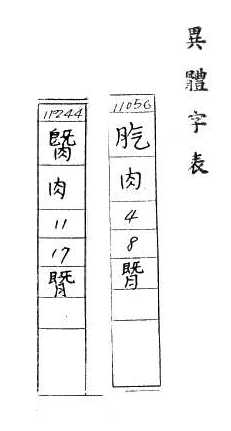 異體字表
11056
肉
4
8
11244
肉
11
17